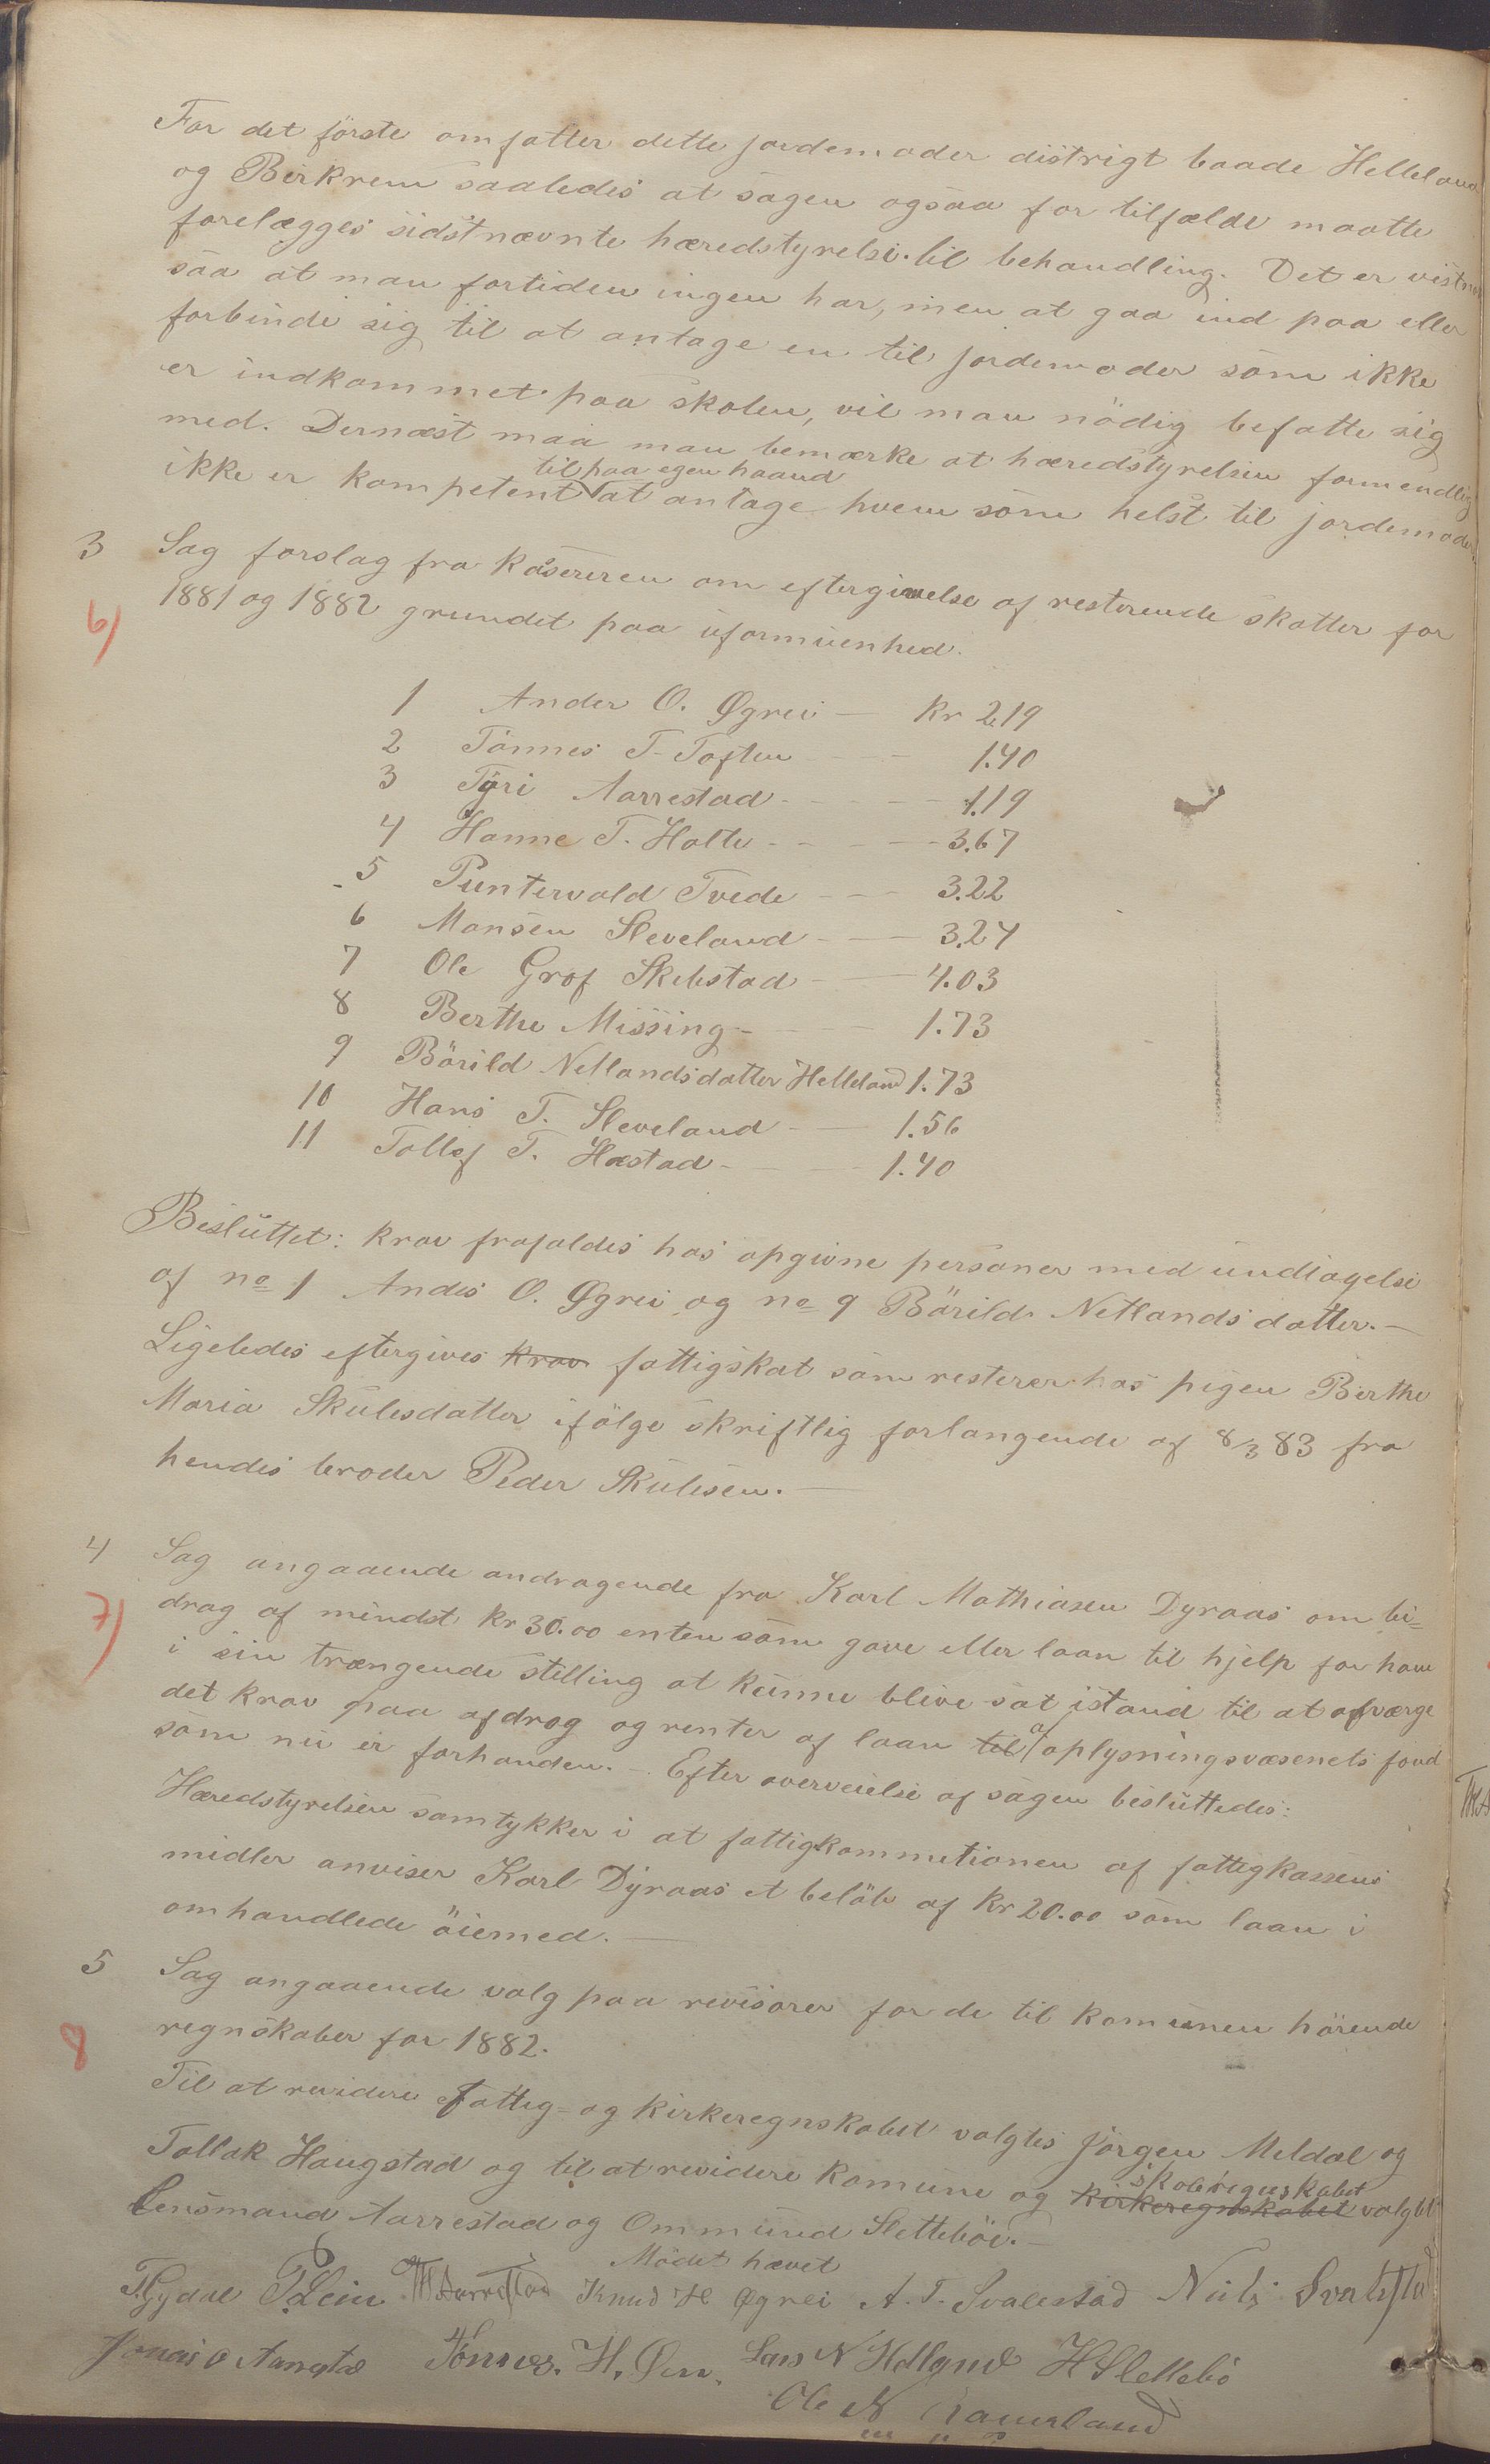 For det første omfatter dette jordemoder distrigt baade Helleland
og Birkrem saaledes at sagen ogsaa for tilfælde maatte
forelægges sidstnævnte hæredstyrelse til behandling. Det er vistnok
saa at man fortiden ingen har, men at gaa ind paa eller
forbinde sig til at antage en til jordemoder som ikke
er indkommet paa skolen, vil man nödig befatte sig
med. Dernæst maa man bemærke at hæredstyrelsen formendlig
til paa egen haand
ikke er kompetent at antage hvem som helst til jordemoder.
3 Sag forslag fra kasereren om eftergivelse af resterende skatter for
6) 1881 og 1882 grundet paa uformuenhed.
1 Ander O. Øgrei — Kr 2.19
2 Tönnes T. Toften - - 1.40
3 Tyri Aarrestad - - - - 1.19
4 Hanne T. Holte - - - - 3.67
5 Puntervold Tvede - - - 3.22
6 Monsen Sleveland - - - 3.24
7 Ole Grof Skebstad - - 4.03
8 Berthe Missing - - - 1.73
9 Börild Netlandsdatter Helleland 1.73
10 Hans T. Sleveland - - 1.56
11 Tollef T. Hæstad - - - 1.40
Besluttet: krav frafaldes hos opgivne personer med undtagelse
af no 1 Andes O. Øgrei og no 9 Börild Netlandsdatter. —
Ligeledes eftergives krav fattigskat som resterer hos pigen Berthe
Maria Skulesdatter ifölge skriftlig forlangende af 8/3 83 fra
hendes broder Peder Skulesen. —
4 Sag angaaende andragende fra Karl Mathiasen Dyraas om bi=
7) drag af mindst kr 30.00 enten som gave eller laan til hjelp for ham
i sin trængende stilling at kunne blive sat istand til at afværge
det krav paa afdrag og renter af laan til af oplysningsvæsenets fond
som nu er forhanden. — Efter overveielse af sagen besluttedes:
Hæredstyrelsen samtykker i at fattigkommetionen af fattigkassens
midler anviser Karl Dyraas et belöb af Kr 20.00 som laan i
omhandlede öiemed. —
5 Sag angaaende valg paa revisorer for de til komunen hörende
8 regnskaber for 1882.
Til at revidere Fattig- og kirkeregnskabet valgtes Jörgen Meldal og
Tollak Haugstad og til at revidere komune og kirkeregnskabet skoleregnskabet valgtes
Lensmand Aarrestad og Ommund Slettebö. —
Mödet hævet
T. Gydal P. Lein TH Aarrestad Knud H Øgrei A. T. Svalestad Nils Svalestad
Jonas O Aarrestad Tönnes. H. Lars N Helland H Slettebö
Ole N